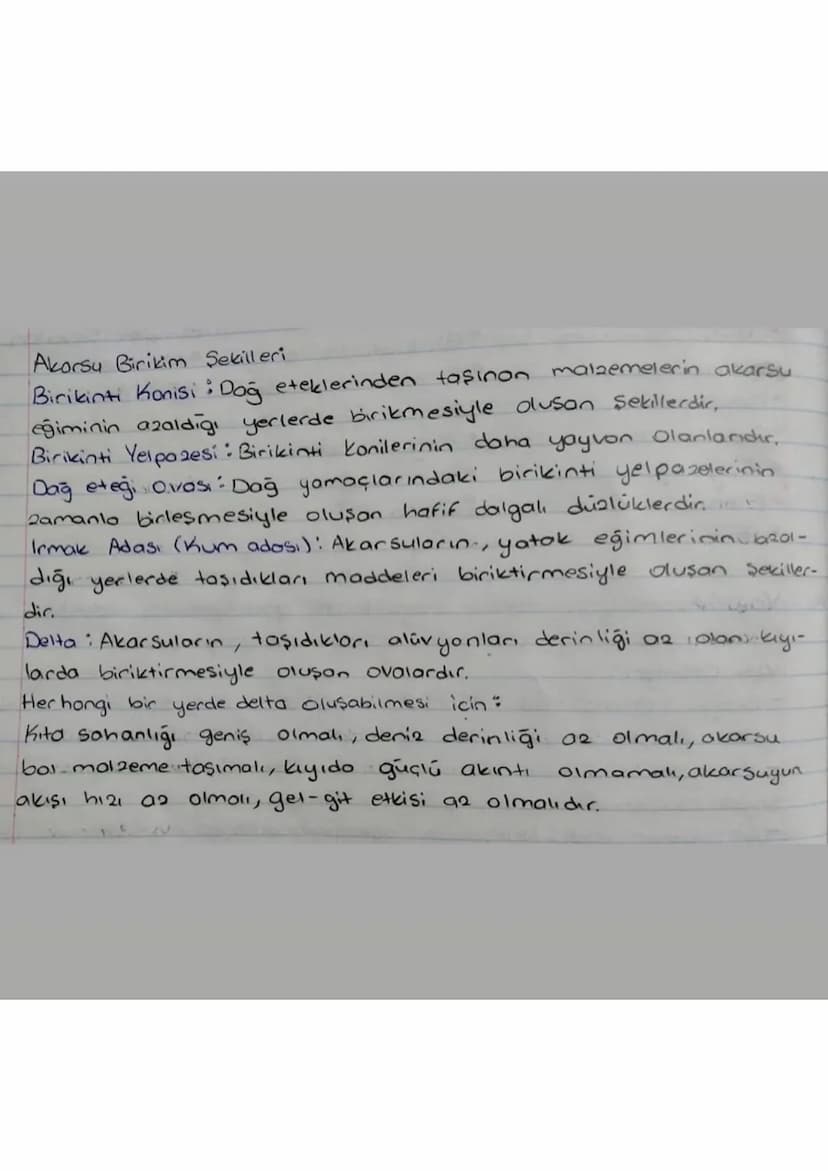 Akarsu Birikim Şekilleri
Birikinti Konisi : Dağ eteklerinden taşınan malzemelerin akarsu
eğiminin azaldığı yerlerde birikmesiyle oluşan şekillerdir.
Birikinti Yelpazesi : Birikinti konilerinin daha yayvan olanlarıdır.
Dağ eteği ovası : Dağ yamaçlarındaki birikinti yelpazelerinin
zamanla birleşmesiyle oluşan hafif dalgalı düzlüklerdir.
Irmak Adası (Kum adası) : Akarsuların, yatak eğimlerinin azal-
dığı yerlerde taşıdıkları maddeleri biriktirmesiyle oluşan şekiller-
dir.
Delta : Akarsuların, taşıdıkları alüvyonları derinliği az olan kıyı-
larda biriktirmesiyle oluşan ovalardır.
Her hangi bir yerde delta oluşabilmesi için :
Kıta sahanlığı geniş olmalı, deniz derinliği az olmalı, akarsu
bol malzeme taşımalı, kıyıda güçlü akıntı olmamalı, akarsuyun
akışı hızı az olmalı, gel-git etkisi az olmalıdır.